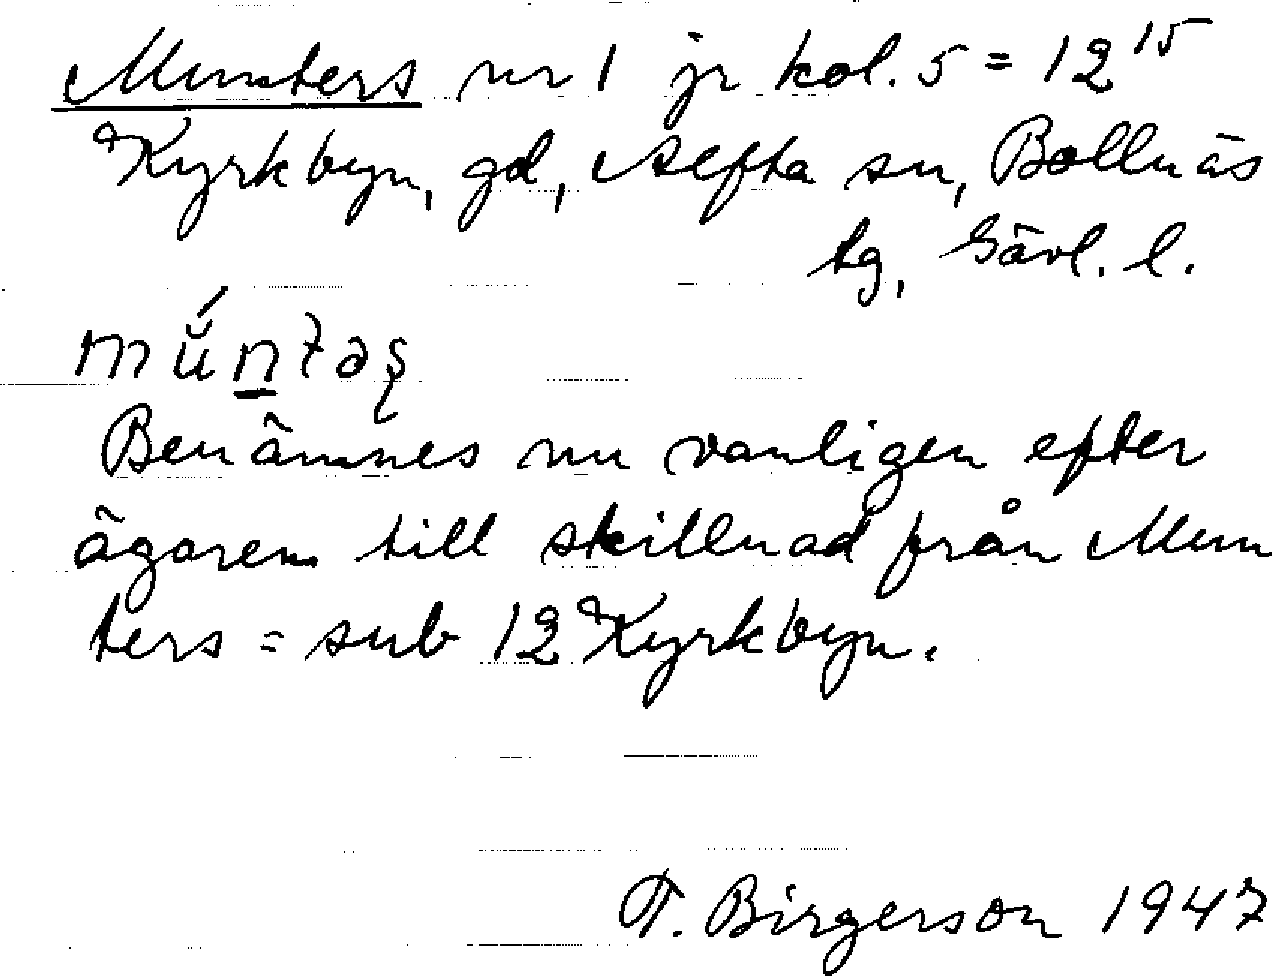 Munters nr 1 jr kol. 5 = 12 15
Kyrkbyn, gd, Alfta sn, Bollnäs
tg, Gävl. l.
mú̆n̲təş
Benämnes nu vanligen efter
ägaren till skillnad från Mun
ters = sub 12 Kyrkbyn.
T. Birgerson 1947